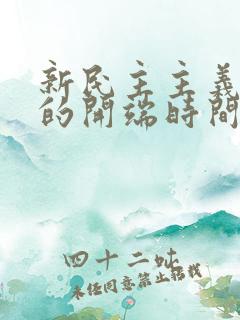 新民主主義
的開端時間
四十二吣
未经同意禁止搭载